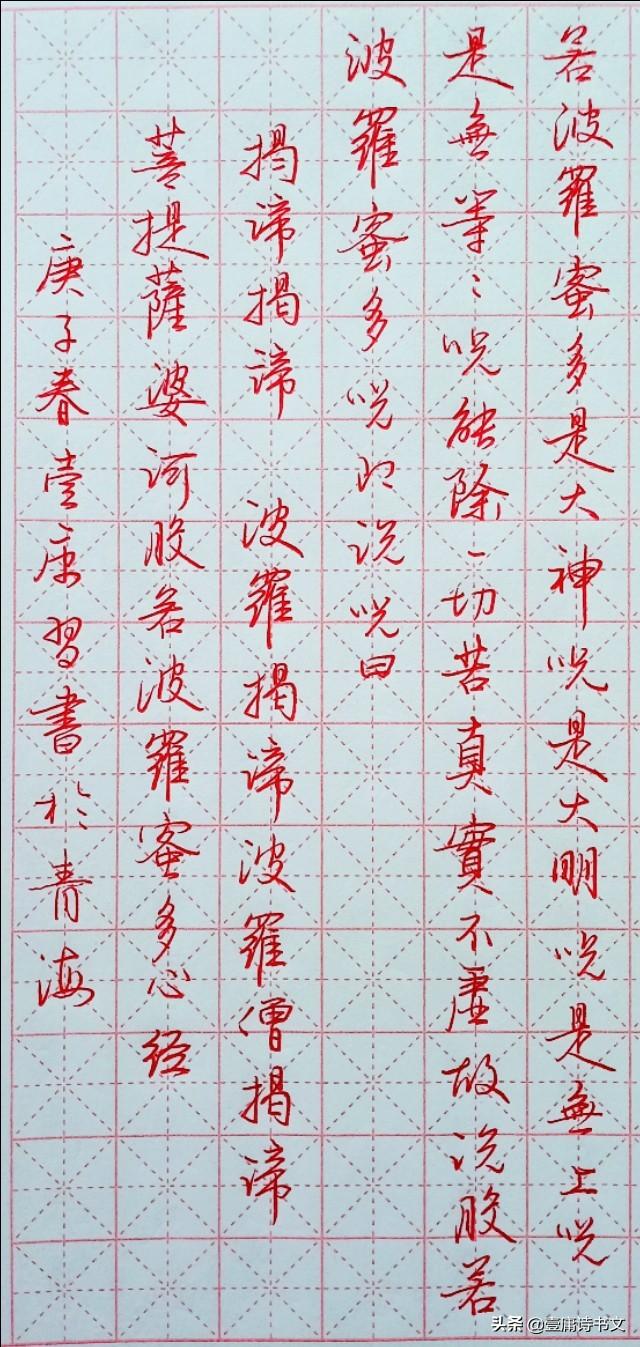 若波羅蜜多是大神咒是大明咒是無上咒
是無等々咒能除一切苦真實不虛故说般若
波羅蜜多咒即说咒曰
揭谛揭谛 波羅揭谛波羅僧揭谛
菩提薩婆诃般若波羅蜜多心经
庚子春壹庸習書於青海
头条@壹庸诗书文